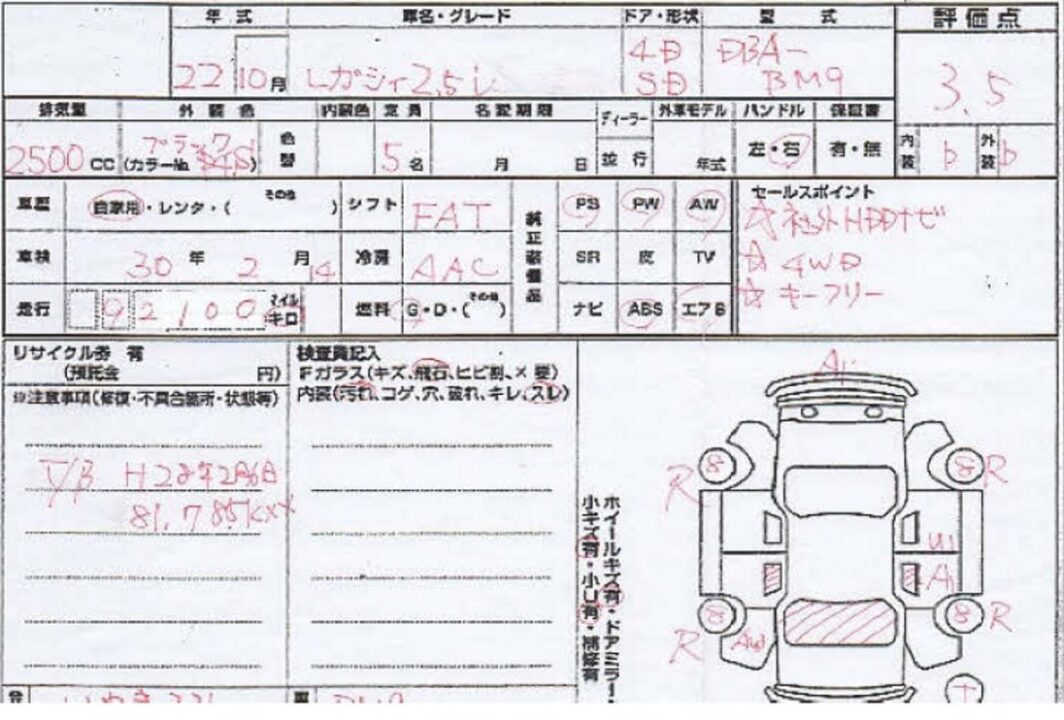 年式 車名・グレード ドア・形状 型式 評価点
22 10月 レガシィ2.5i 4D SD DBA-BM9 3.5
排気量 外装色 内装色 定員 名変期限 ディーラー 外車モデル ハンドル 保証書
並行
2500CC ブラック (カラーNo. ) 色替 5名 月 日 年式 左・右 有・無 内装 b 外装 b
車歴 自家用・レンタ・( その他 ) シフト FAT
車検 30年2月14 冷房 AAC
走行 92100 マイル キロ 燃料 G・D・( その他 )
純正装備品
PS PW AW
SR 皮 TV
ナビ ABS エアB
セールスポイント
☆社外HDDナビ
☆4WD
☆キーフリー
リサイクル券 有
(預託金 円)
※注意事項(修復・不具合箇所・状態等)
T/B H28年2月6日
81,785km
検査員記入
Fガラス(キズ、飛石、ヒビ割、×要)
内装(汚れ、コゲ、穴、破れ、キレ、スレ)
ホイールキズ有・ドアミラー・
小キズ有・小U有・補修有
A1
R 8 8 R
U1
A1
R 8 8 R
AW